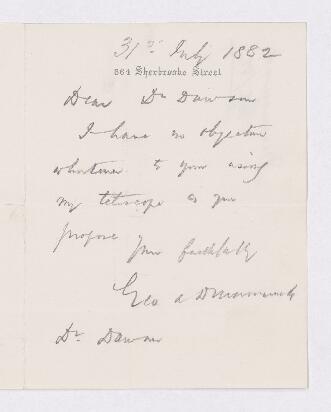 31st July 1882
564 Sherbrooke Street
Dear Dr Dawson
I have no objection
whatever to your using
my telescope as you
propose
Yours faithfully
Geo a Drummond
Dr. Dawson